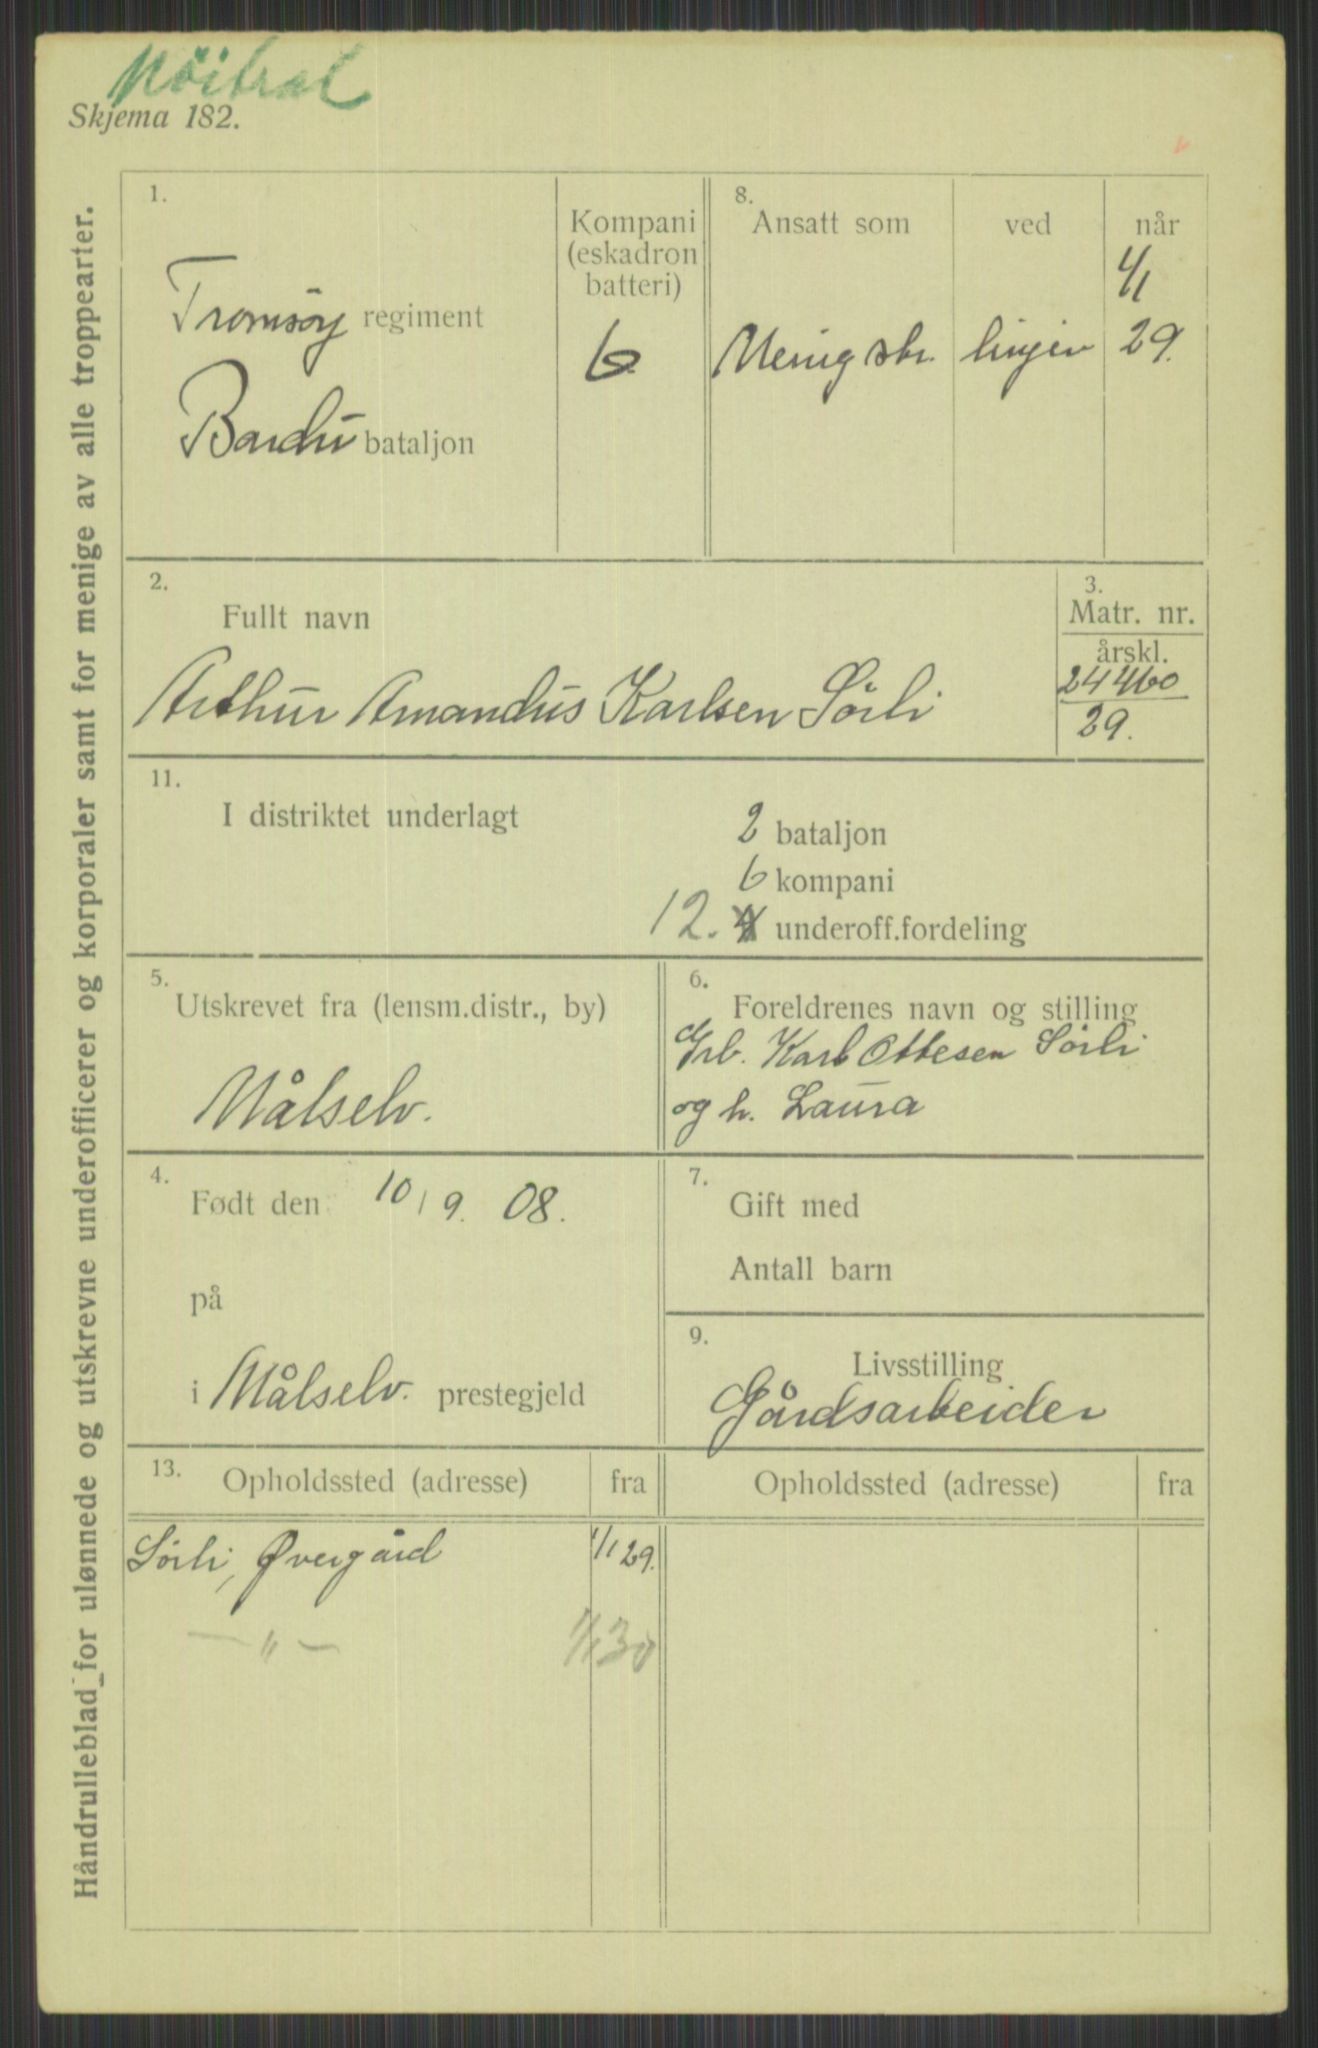 Nöitral
Skjema 182.
Håndrulleblad for ulønnede og utskrevne underofficerer og korporaler samt for menige av alle troppearter.
1.
Tromsöy regiment
Bardu bataljon
Kompani
(eskadron
batteri)
6.
8.
Ansatt som
ved
når
1/1
Menig str.
linjen
29.
2.
Fullt navn
Arthur Amandus Karlsen Sörli
3.
Matr. nr.
årskl.
24460
29.
11.
I distriktet underlagt
2 bataljon
6 kompani
12. underoff.fordeling
5.
Utskrevet fra (lensm.distr., by)
Målselv.
6.
Foreldrenes navn og stilling
Grb. Karl Ottesen Sörli
og h. Laura
4.
Født den 10/9. 08.
på
i Målselv. prestegjeld
7.
Gift med
Antall barn
9.
Livsstilling
Gårdsarbeider
13.
Opholdssted (adresse) fra
Opholdssted (adresse) fra
Sörli, Øvergård 1/1 29.
— " — 1/1 30